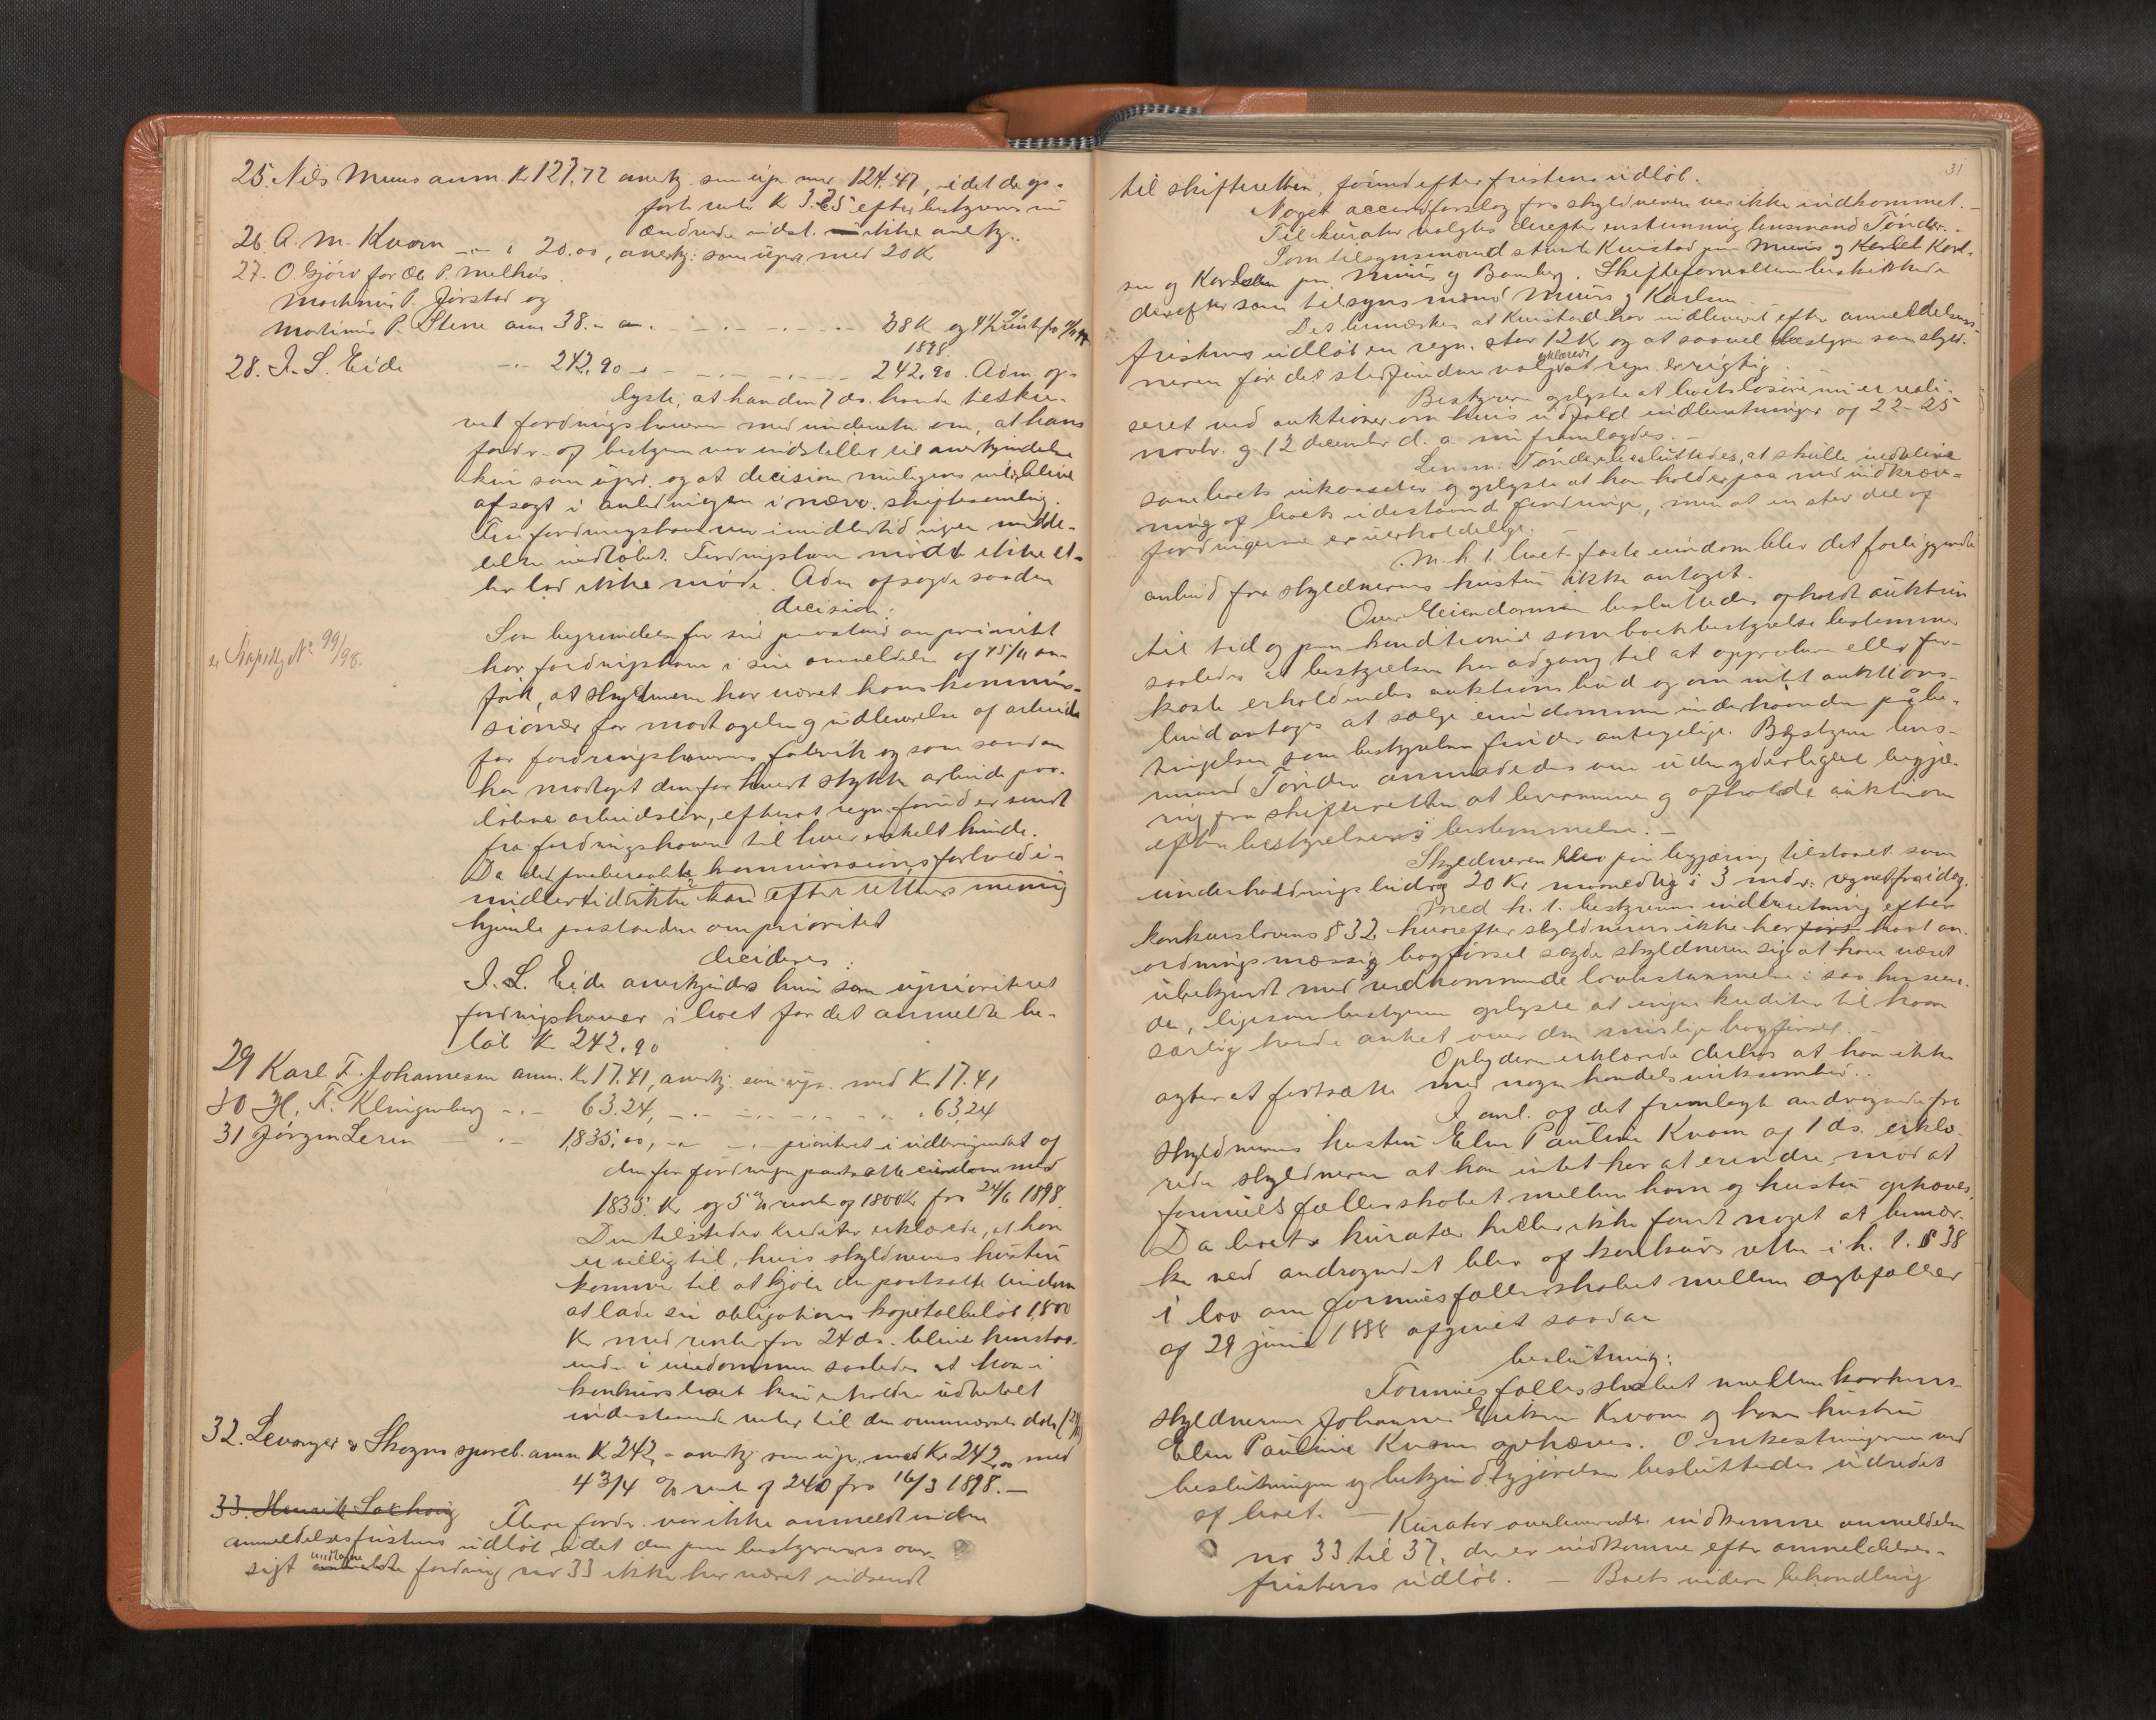 25. Nils Muus anm. Kr 127.72 anerkj. som upr. med 124.47, idet de op-
førte renter Kr 3.25 efter bestyrerens nu
ændrede indst. ikke anerkj.
26. A. M. Kvam -"- " 20.00, anerkj. som upr. med 20 Kr
27. O. Gjörv for Ole P. Melhus
Martinus P. Jørstad og
Martinus P. Stene anm 38.- an. -.- -.- -.- 38 Kr og 4½ % rente fra
1898.
28. I. L. Eide -"- 242.90 -.- -.- -.- 242.90. Adm. op-
lyste, at han den 7 ds. havde tilskre-
vet fordringshaveren med underretn. om, at hans
fordr. af bestyreren var indstillet til anerkjendelse
kun som upr. og at decision muligens vilde blive
afsagt i anledningen i nærv. skiftesamling.
Fra fordringshaveren imidlertid ingen medde-
lelse indløbet. Fordringshaveren mødte ikke el-
ler lod ikke møde. Adm afsagde saadan
decision:
Som begrundelse for sin paastand om prioritet
har fordringshaveren i sin anmeldelse af 15/11 an-
ført, at skyldneren har været hans kommis-
sionær for modtagelse og udleverelse af arbeide
for fordringshaverens fabrik og som saadan
har modtaget den for hvert stykke arbeide paa-
løbne arbeidsløn, efterat regn. forud er sendt
fra fordringshaveren til hver enkelt kunde.
Da det paaberaabte kommissionsforhold i-
midlertid ikke kan efter rettens mening
hjemle paastanden om prioritet
decideres:
I. L. Eide anerkjendes kun som uprioriteret
fordringshaver i boet for det anmeldte be-
løb Kr 242.90
29 Karl F. Johannessen anm. Kr 17.41, anerkj. som upr. med Kr 17.41
30 H. F. Klingenberg -.- 63.24, -.- -.- -.- " 63.24
31 Jørgen Lerin -.- 1835.00, -.- -.- prioriteret i udbringendet af
den for fordringen pantsatte eiendom med
1835 Kr og 5 % rente af 1800 Kr fra 24/6 1898.
Den tilstedev. kreditor erklærede, at han
er villig til, hvis skyldnerens hustru
kommer til at kjøbe den pantsatte eiendom
at lade sin obligations kapitalbeløb 1,800
Kr med renter fra 24 ds. blive henstaa-
ende i eiendommen saaledes at han i
konkursboet kun erholder udbetalt
indestaaende renter til den omnævnte dato
32. Levanger & Skogns spareb. anm Kr 242,- anerkj. som upr. med Kr 242,00 med
4 3/4 % rente af 240 fra 16/3 1898.-
33. Henrik
Flere fordr. var ikke anmeldt inden
anmeldelsesfristens udløb idet den paa bestyrerens over-
sigt undtagne fordring no 33 ikke har været indsendt
er Kapsdtg No 99/98.
31
til skifteretten, førend efter fristens udløb.
Noget accordforslag fra skyldneren var ikke indkommet.-
Til kurator valgtes derefter enstemmig lensmand Tønder.-
Som tilsynsmænd stemte Kunstad paa Muus og Karl-
sen og Karlsen paa Muus og Bomberg. Skifteforvalteren beskikkede
derefter som tilsynsmænd Muus og Karlsen.
Det bemærkes at Kunstad har indleveret efter anmeldelses-
fristens udløb en regn. stor 12 Kr og at saavel bestyreren som skyld-
neren før det stedfundne valg erklærede at regn. er rigtig.
Bestyreren oplyste at boets løsøre nu er reali-
seret ved auktioner om hvis udfald indberetninger af 22-25
novbr. og 12 december d. a. nu fremlagdes.-
Lensm. Tønder besluttedes, at skulle vedblive
som boets inkassator og oplyste at han holder paa med indkræv-
ning af boets udestaaende fordringer, men at en stor del af
fordringerne er uerholdelige.
M. h. t. boets faste eiendom blev det foreliggende
anbud fra skyldnerens hustru ikke antaget.
Over eiendommen besluttedes afholdt auktion
til tid og paa kundtionis som boets bestyrelse bestemmer
saaledes at bestyrelsen har adgang til at approbere eller for-
kaste erholdendes auktionsbud og om intet auktions-
bud antages at sælge eiendommen underhaanden på be-
tingelser som bestyrelsen finder antagelige. Bestyreren lens-
mand Tønder anmodedes om uden yderligere begjæ-
ring fra skifteretten at beramme og afholde auktion
efter bestyrelsens bestemmelse.-
Skyldneren blev paa begjæring tilstaaet som
underholdningsbidrag 20 Kr maanedlig i 3 mdr: regnet fra idag.
Med h. t. bestyrerens indberetning efter
konkurslovens § 32, hvorefter skyldneren ikke har havt an-
ordningsmæssig bogførsel sagde skyldneren sig at have været
ubekjendt med vedkommende lovbestemmelse i saa henseen-
de, ligesom bestyreren oplyste at ingen kreditor til ham
særlig havde anket over den mislige bogførsel.-
Opbyderen erklærede derhos at han ikke
agter at fortsætte med nogen handelsvirksomhed.
I anl. af det fremlagte andragende fra
skyldnerens hustru Elen Pauline Kvam af 1 ds. erklæ-
rede skyldneren at han intet har at erindre mod at
formuesfællesskabet mellem ham og hustru ophæves.
Da boets kurator heller ikke fandt noget at bemær-
ke ved andragendet blev af konkursretten i h. t. § 38
i lov om formuesfællesskabet mellem ægtefæller
af 29 juni 1888 afgivet saadan
beslutning:
Formuesfællesskabet mellem konkurs-
skyldneren Johannes Eriksen Kvam og hans hustru
Elen Pauline Kvam ophæves. Omkostningerne ved
beslutningen og bekjendtgjørelsen besluttedes udredet
af boet. - Kurator overleverede indkomne anmeldelser
no 33 til 37, der er indkomne efter anmeldelses-
fristens udløb. - Boets videre behandling